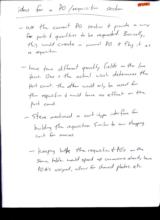 ideas for a PO/requisition section
- use the current PO section & provide a view
for parts & quantities to be requested. Secondly,
this would create a normal PO & flag it as
a requisition
- have two different quantity fields on the line
item. One is the actual which determines the
part count. the other would only be used for
the requisition & would have no effect on the
part count
- Steve mentioned a cart-type interface for
building the requisition similar to our shopping
cart for invoices
- keeping both the requisition & POs in the
same table would speed up conversions